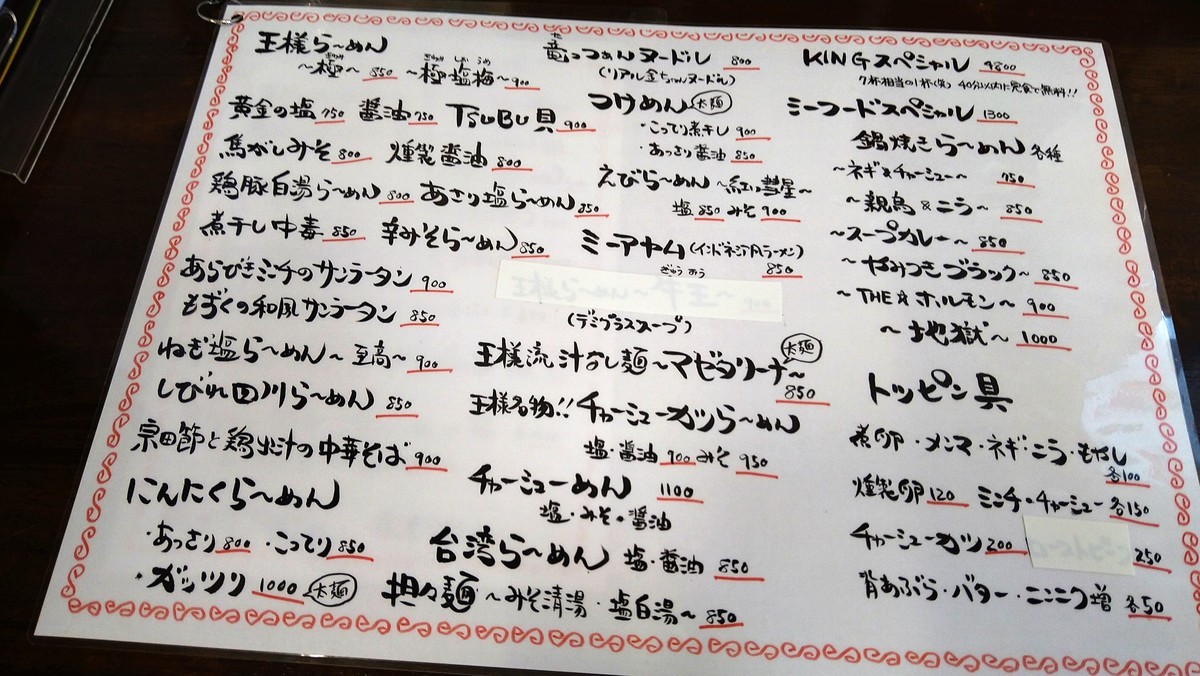 王様ら〜めん
〜極〜 850 〜極塩梅〜 900
黄金の塩 750 醤油 750 TSUBU貝 900
馬がしみそ 800 燻製醤油 800
鶏豚白湯ら〜めん 800 あさり塩ら〜めん 850
煮干し中毒 850 辛みそら〜めん 850
あらびきミンチのサンラータン 900
もずくの和風サンラータン 850
ねぎ塩ら〜めん〜至高〜 900
しびれ四川ら〜めん 850
宗田節と鶏出汁の中華そば 900
にんにくら〜めん
・あっさり 800 ・こってり 850
・ガッツリ 1000 太麺
竜ちゃんヌードル 800
(リアル金ちゃんヌードル)
つけめん 太麺
・こってり煮干し 900
・あっさり醤油 850
えびら〜めん 〜紅い彗星〜
塩 850 みそ 900
ミーアヤム (インドネシア风ラーメン)
850
ぎゅう おう
(デミグラススープ)
王様流汁なし麺〜マゼタリーナ〜 太麺
850
王様名物!! チャーシューカツら〜めん
塩・醤油 900 みそ 950
チャーシューめん 1100
塩・みそ・醤油
台湾ら〜めん 塩・醤油 850
担々麺 〜みそ清湯・塩白湯〜 850
KINGスペシャル
7杯相当の1杯(笑) 40分以内に完食で無料!!
ミーフードスペシャル 1300
鍋焼きら〜めん 各種
〜ネギ&チャーシュー〜 750
〜親鳥&ニラ〜 850
〜スープカレー〜 850
〜やみつきブラック〜 850
〜THE☆ホルモン〜 900
〜地獄〜 1000
トッピン具
煮卵・メンマ・ネギ・ニラ・もやし
各100
燻製卵 120 ミンチ・チャーシュー 各150
チャーシューカツ 200 250
背あぶら・バター・ニンニク増 各50